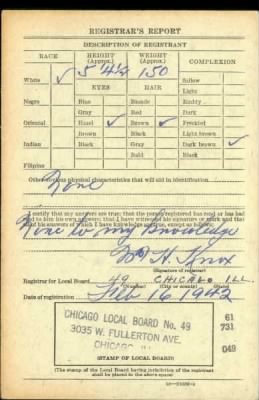 REGISTRAR'S REPORT
DESCRIPTION OF REGISTRANT
RACE HEIGHT (Approx.) WEIGHT (Approx.) COMPLEXION
White ✓ 5 4½ 150 Sallow
Light
EYES HAIR Ruddy
Negro Blue Blonde Dark
Gray Red Freckled
Oriental Hazel ✓ Brown ✓ Light brown
Brown Black Dark brown ✓
Indian Black Gray Black
Bald
Filipino
Other obvious physical characteristics that will aid in identification
None
I certify that my answers are true; that the person registered has read or has had
read to him his own answers; that I have witnessed his signature or mark and that
all of his answers of which I have knowledge are true, except as follows:
None to my knowledge
H. Knox
(Signature of registrar)
Registrar for Local Board 49 CHICAGO ILL.
(Number) (City or county) (State)
Date of registration Feb 16 1942
CHICAGO LOCAL BOARD No. 49
3035 W. FULLERTON AVE.
CHICAGO
61
731
049
(STAMP OF LOCAL BOARD)
(The stamp of the Local Board having jurisdiction of the registrant
shall be placed in the above space)